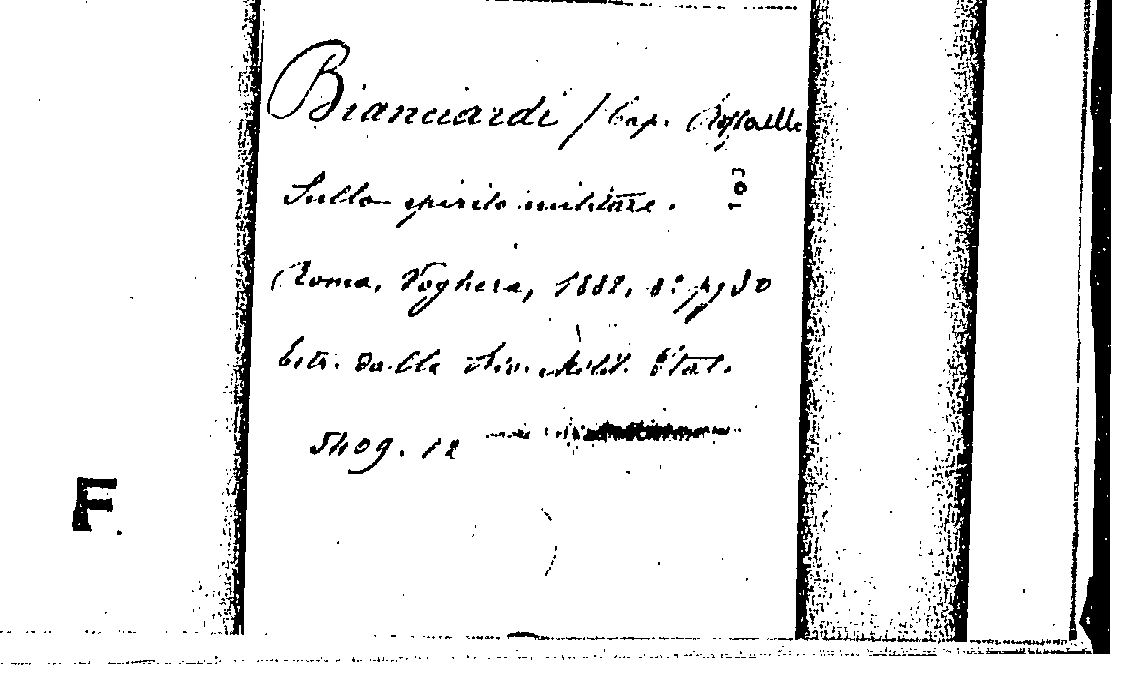 Bianciardi / Cap. Raffaello
103
Sullo spirito militare.
Roma, Voghera, 1888, 8° pg 30
Estr. dalla Riv. Milit. Ital.
5409. 12
F.